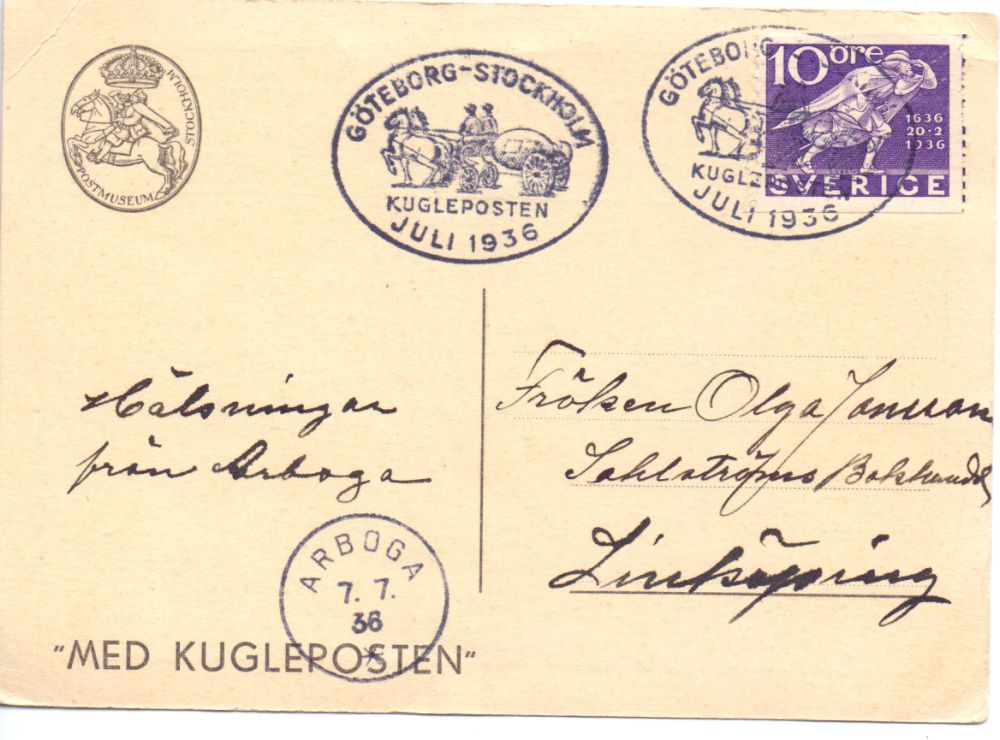 POSTMUSEUM STOCKHOLM
GÖTEBORG-STOCKHOLM
KUGLEPOSTEN
JULI 1936
GÖTEBORG
KUGLEPOSTEN
JULI 1936
10 öre
1636
20·2
1936
SVERIGE
Hälsningar
från Arboga
Fröken Olga Jonsson
Sahlströms Bokhandel
Linköping
ARBOGA
7. 7.
36
"MED KUGLEPOSTEN"